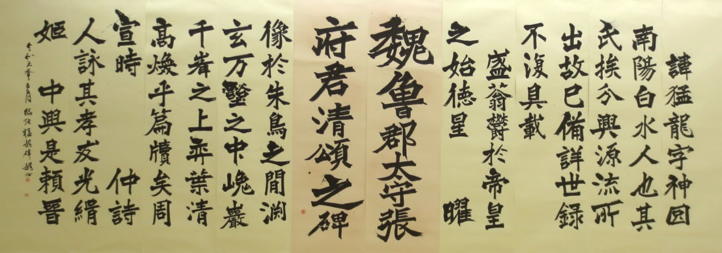 諱猛龍字神囧
南陽白水人也其
氏族分興源流所
出故已備詳世錄
不復具載
盛蓊鬱於帝皇
之始德星 曜
魏魯郡太守張
府君清頌之碑
像於朱鳥之間渕
玄万壑之中巉巖
千峯之上弈葉清
高煥乎篇牘矣周
宣時 仲詩
人詠其孝友光緝
姬 中興是賴晉